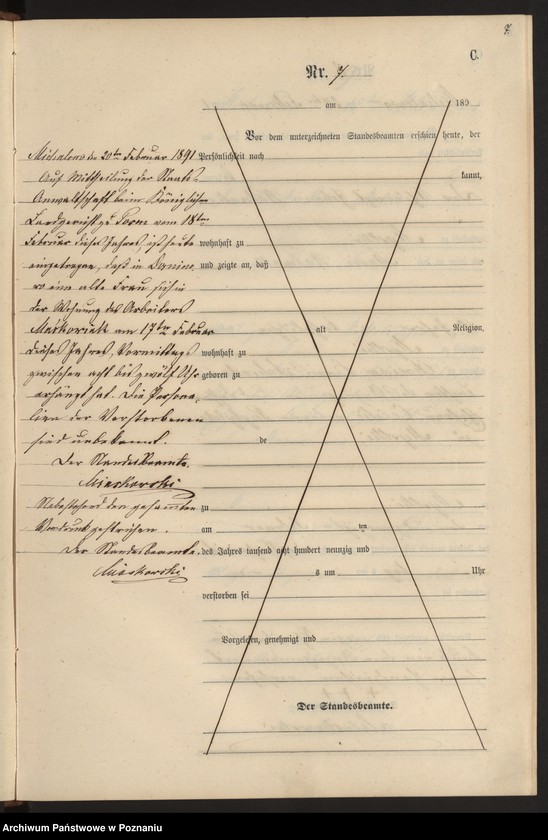 7.
C.
Nr. 7.
am 189
Vor dem unterzeichneten Standesbeamten erschien heute, der
Persönlichkeit nach
kannt,
wohnhaft zu
und zeigte an, daß
alt Religion,
wohnhaft zu
geboren zu
de
zu
am ten
des Jahres tausend acht hundert neunzig und
s um Uhr
verstorben sei
Vorgelesen, genehmigt und
Der Standesbeamte.
Michalowo den 20ten Februar 1891
Auf Mittheilung der Staats-
Anwaltschaft beim Königlichen
Landgericht zu vom 18ten
Februar dieses Jahres ist heute
eingetragen, daß in
wo eine alte Frau sich in
der Wohnung des Arbeiters
am 17ten Februar
dieses Jahres, Vormittags
zwischen acht bis zwölf Uhr
erhängt hat. Die Persona-
lien der Verstorbenen
sind unbekannt.
Der Standesbeamte.
Miaskowski
Nebenstehend den gesamten
Vordruck gestrichen.
Der Standesbeamte.
Miaskowski
Archiwum Państwowe w Poznaniu